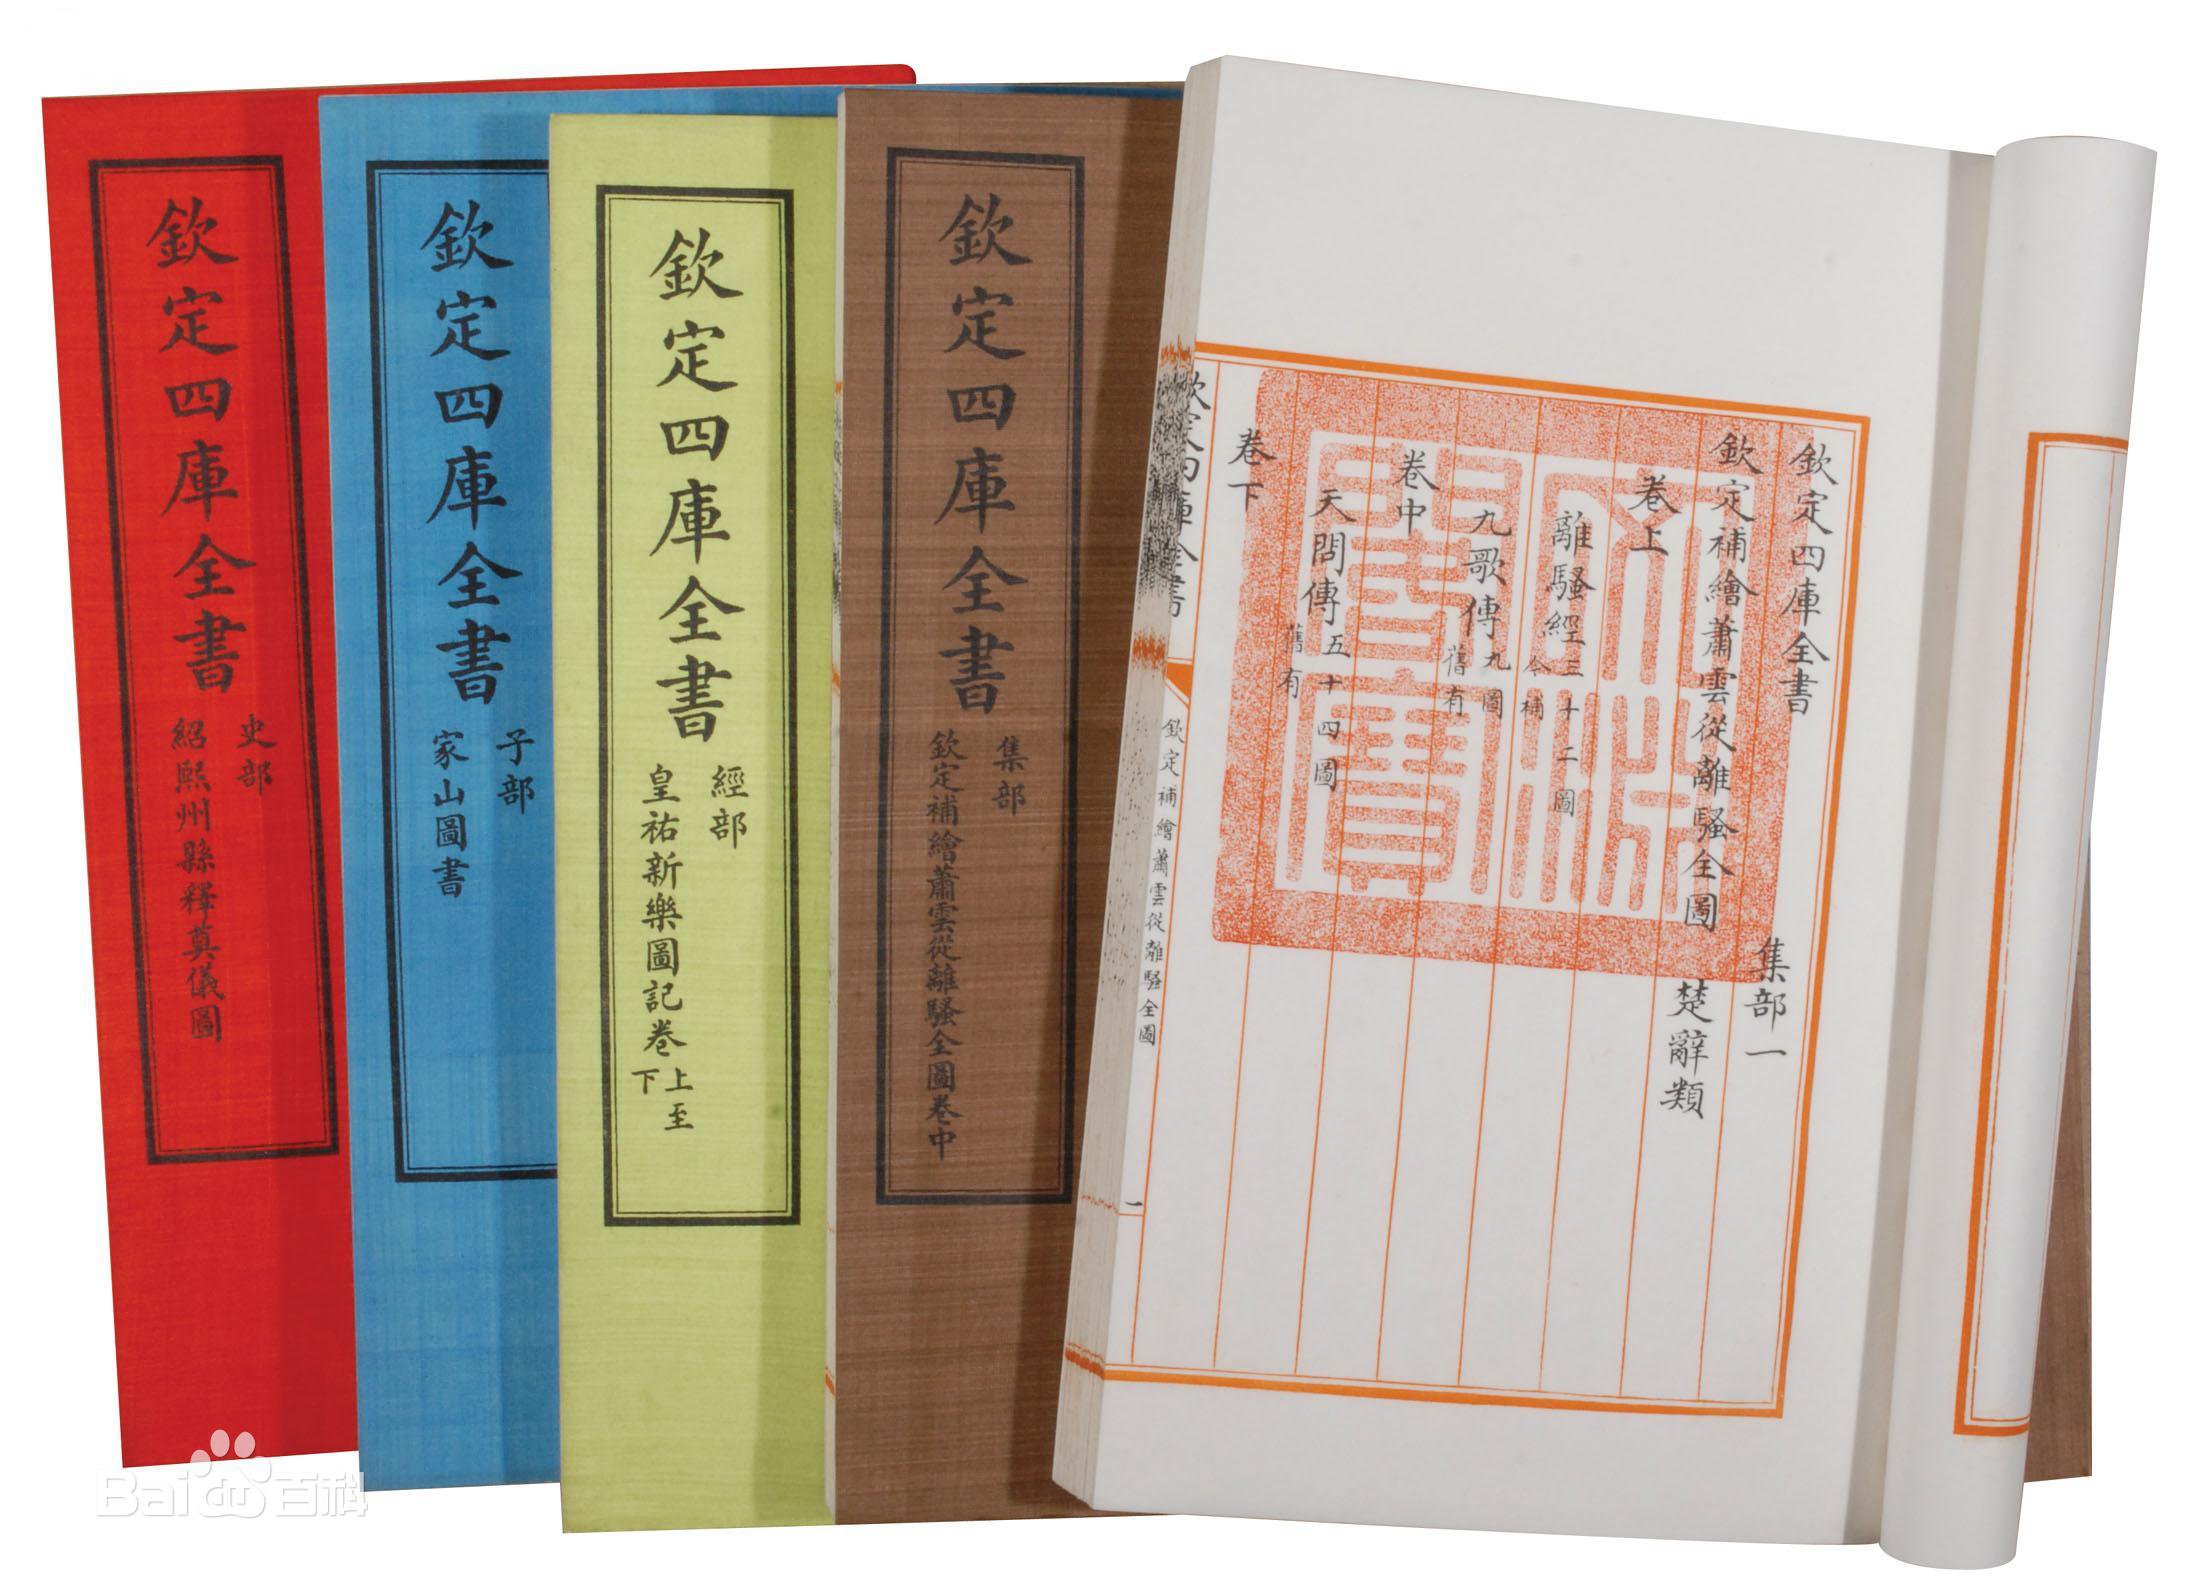 欽定四庫全書
史部
紹熙州縣釋奠儀圖
欽定四庫全書
子部
家山圖書
欽定四庫全書
經部
皇祐新樂圖記卷上至下
欽定四庫全書
集部
欽定補繪蕭雲從離騷全圖卷中
欽定四庫全書 集部一
欽定補繪蕭雲從離騷全圖 楚辭類
卷上
離騷經三十二圖今補
卷中
九歌傳九圖舊有
天問傳五十四圖舊有
卷下
欽定四庫全書
欽定補繪蕭雲從離騷全圖
一
Bai百科